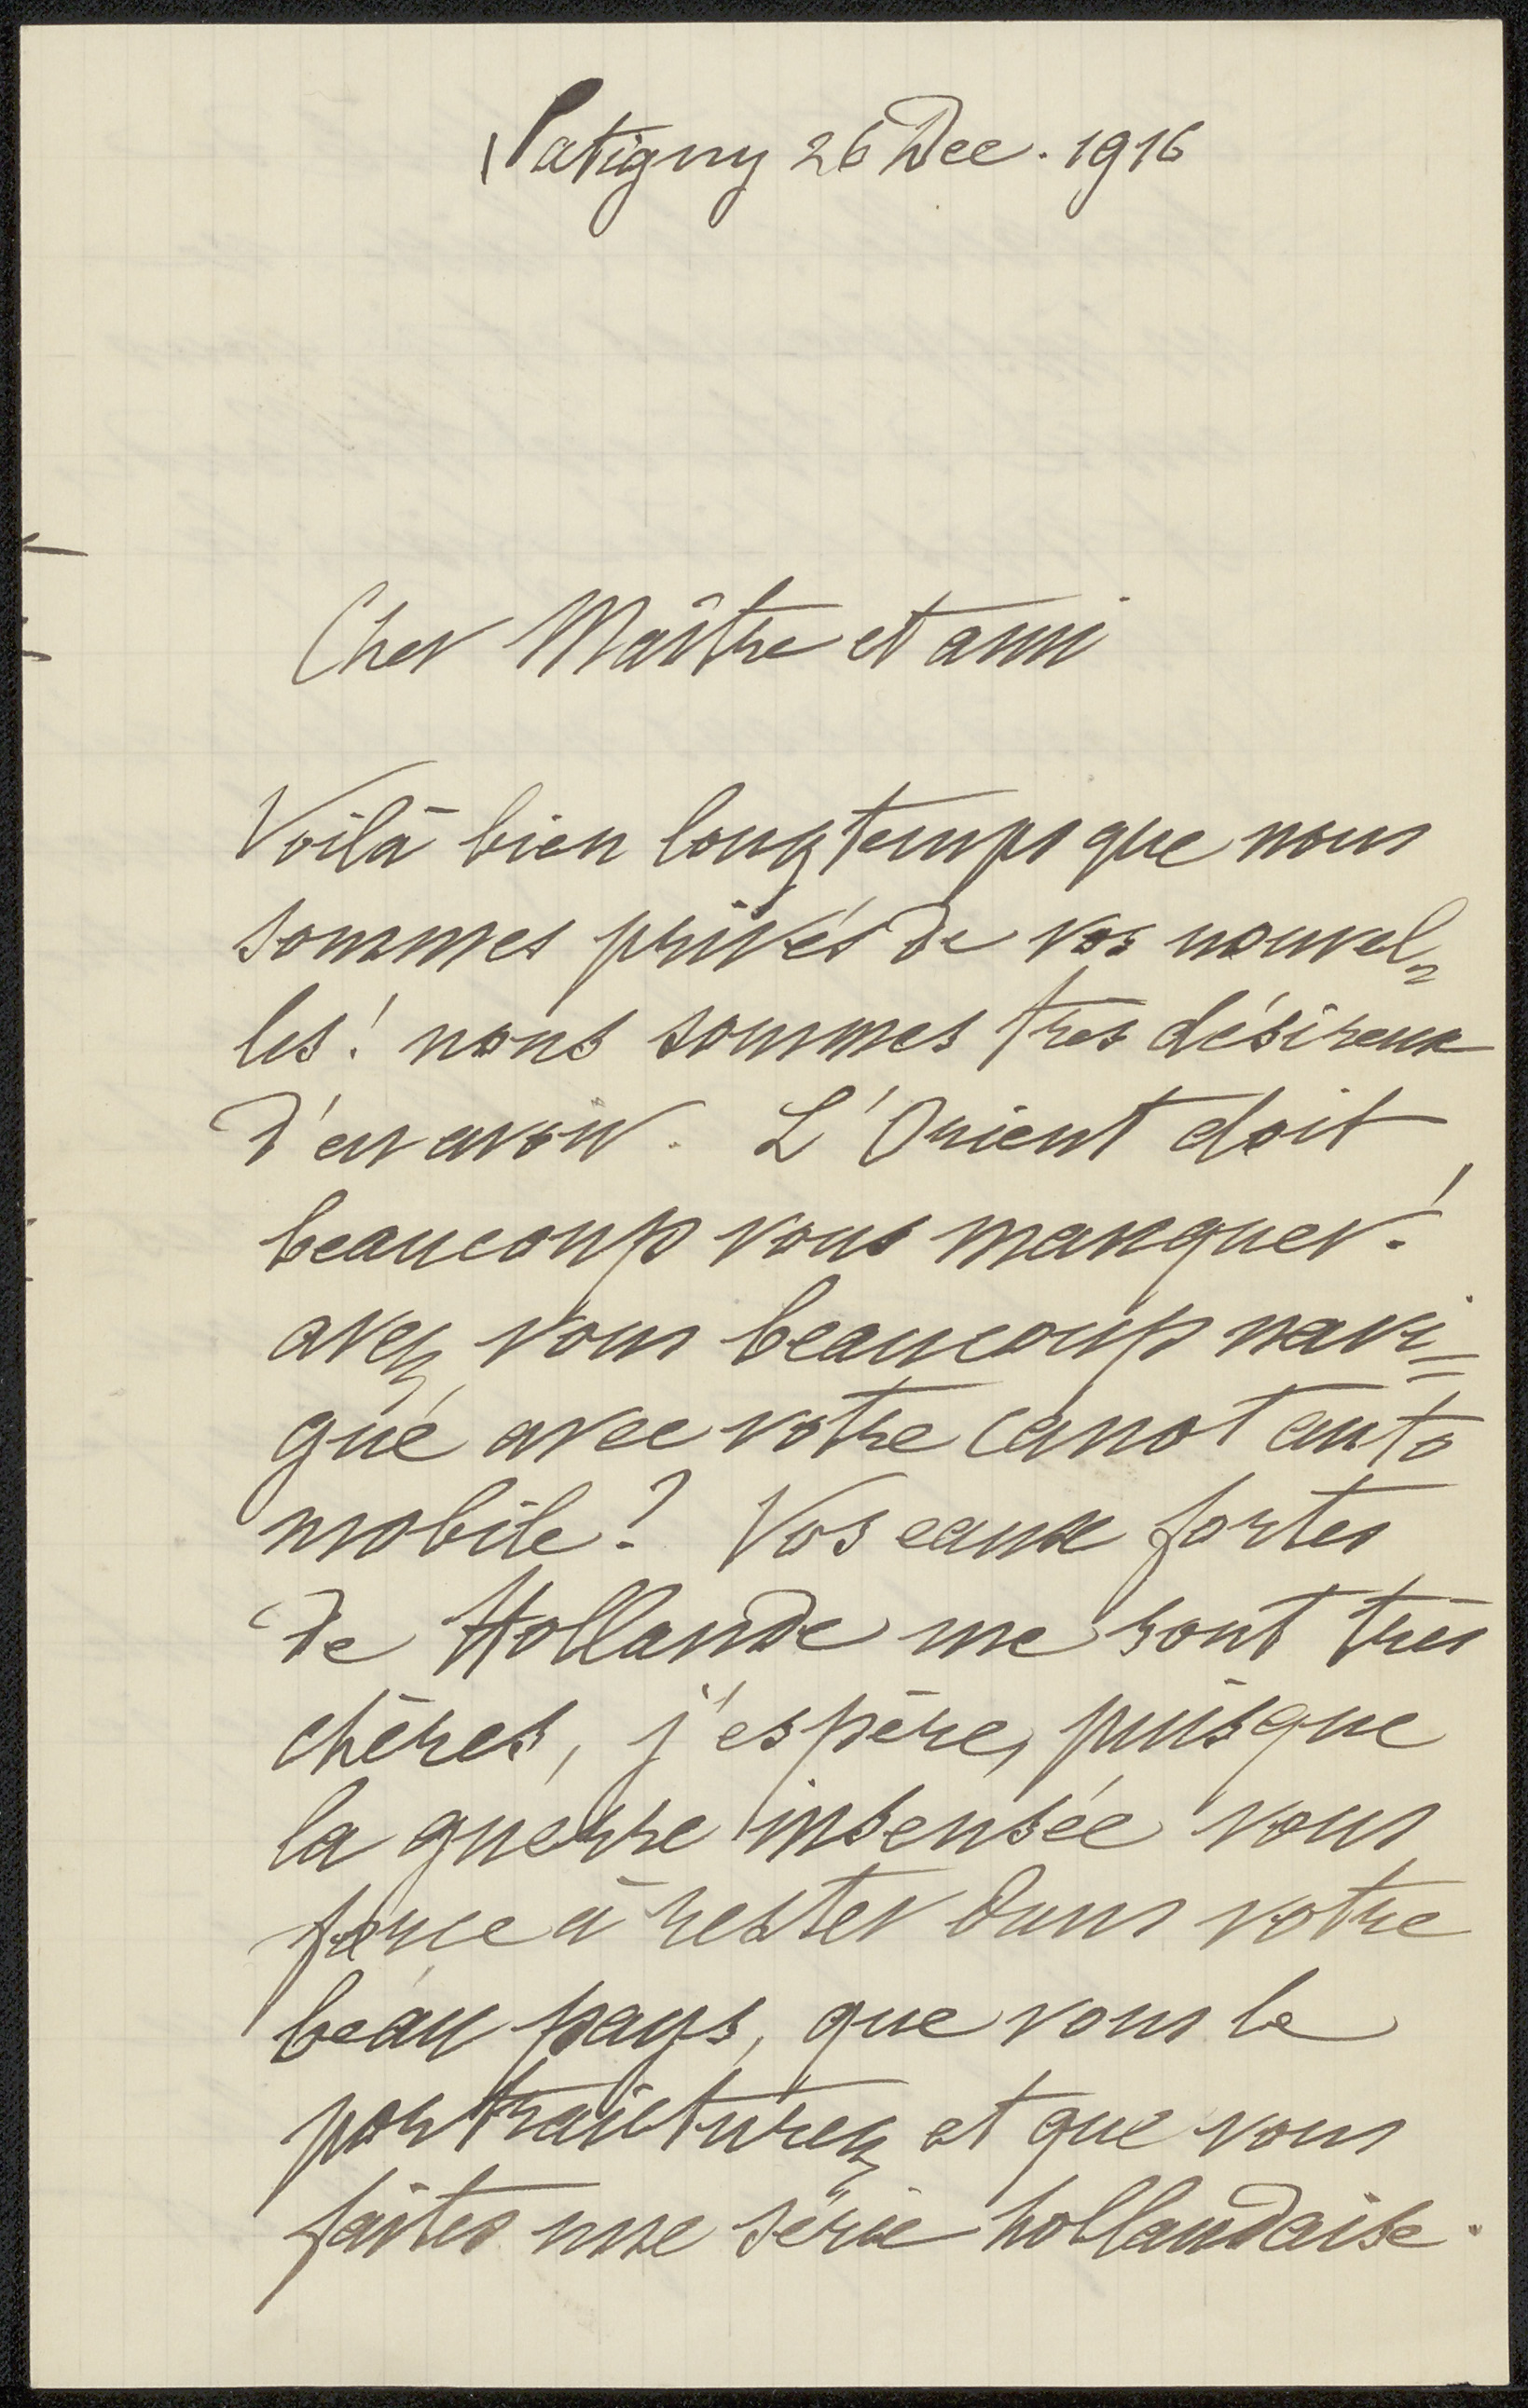 Satigny 26 Dec. 1916
Cher Maître et ami
Voilà bien longtemps que nous
sommes privés de vos nouvel-
les! nous sommes très désireux
d'en avoir. L'Orient doit
beaucoup vous manquer!
avez vous beaucoup navi=
gué avec votre canot auto
mobile? Vos eaux fortes
de Hollande me sont très
chères, j'espère, puisque
la guerre insensée vous
force à rester dans votre
beau pays, que vous le
portraicturez et que vous
faites une série hollandaise.